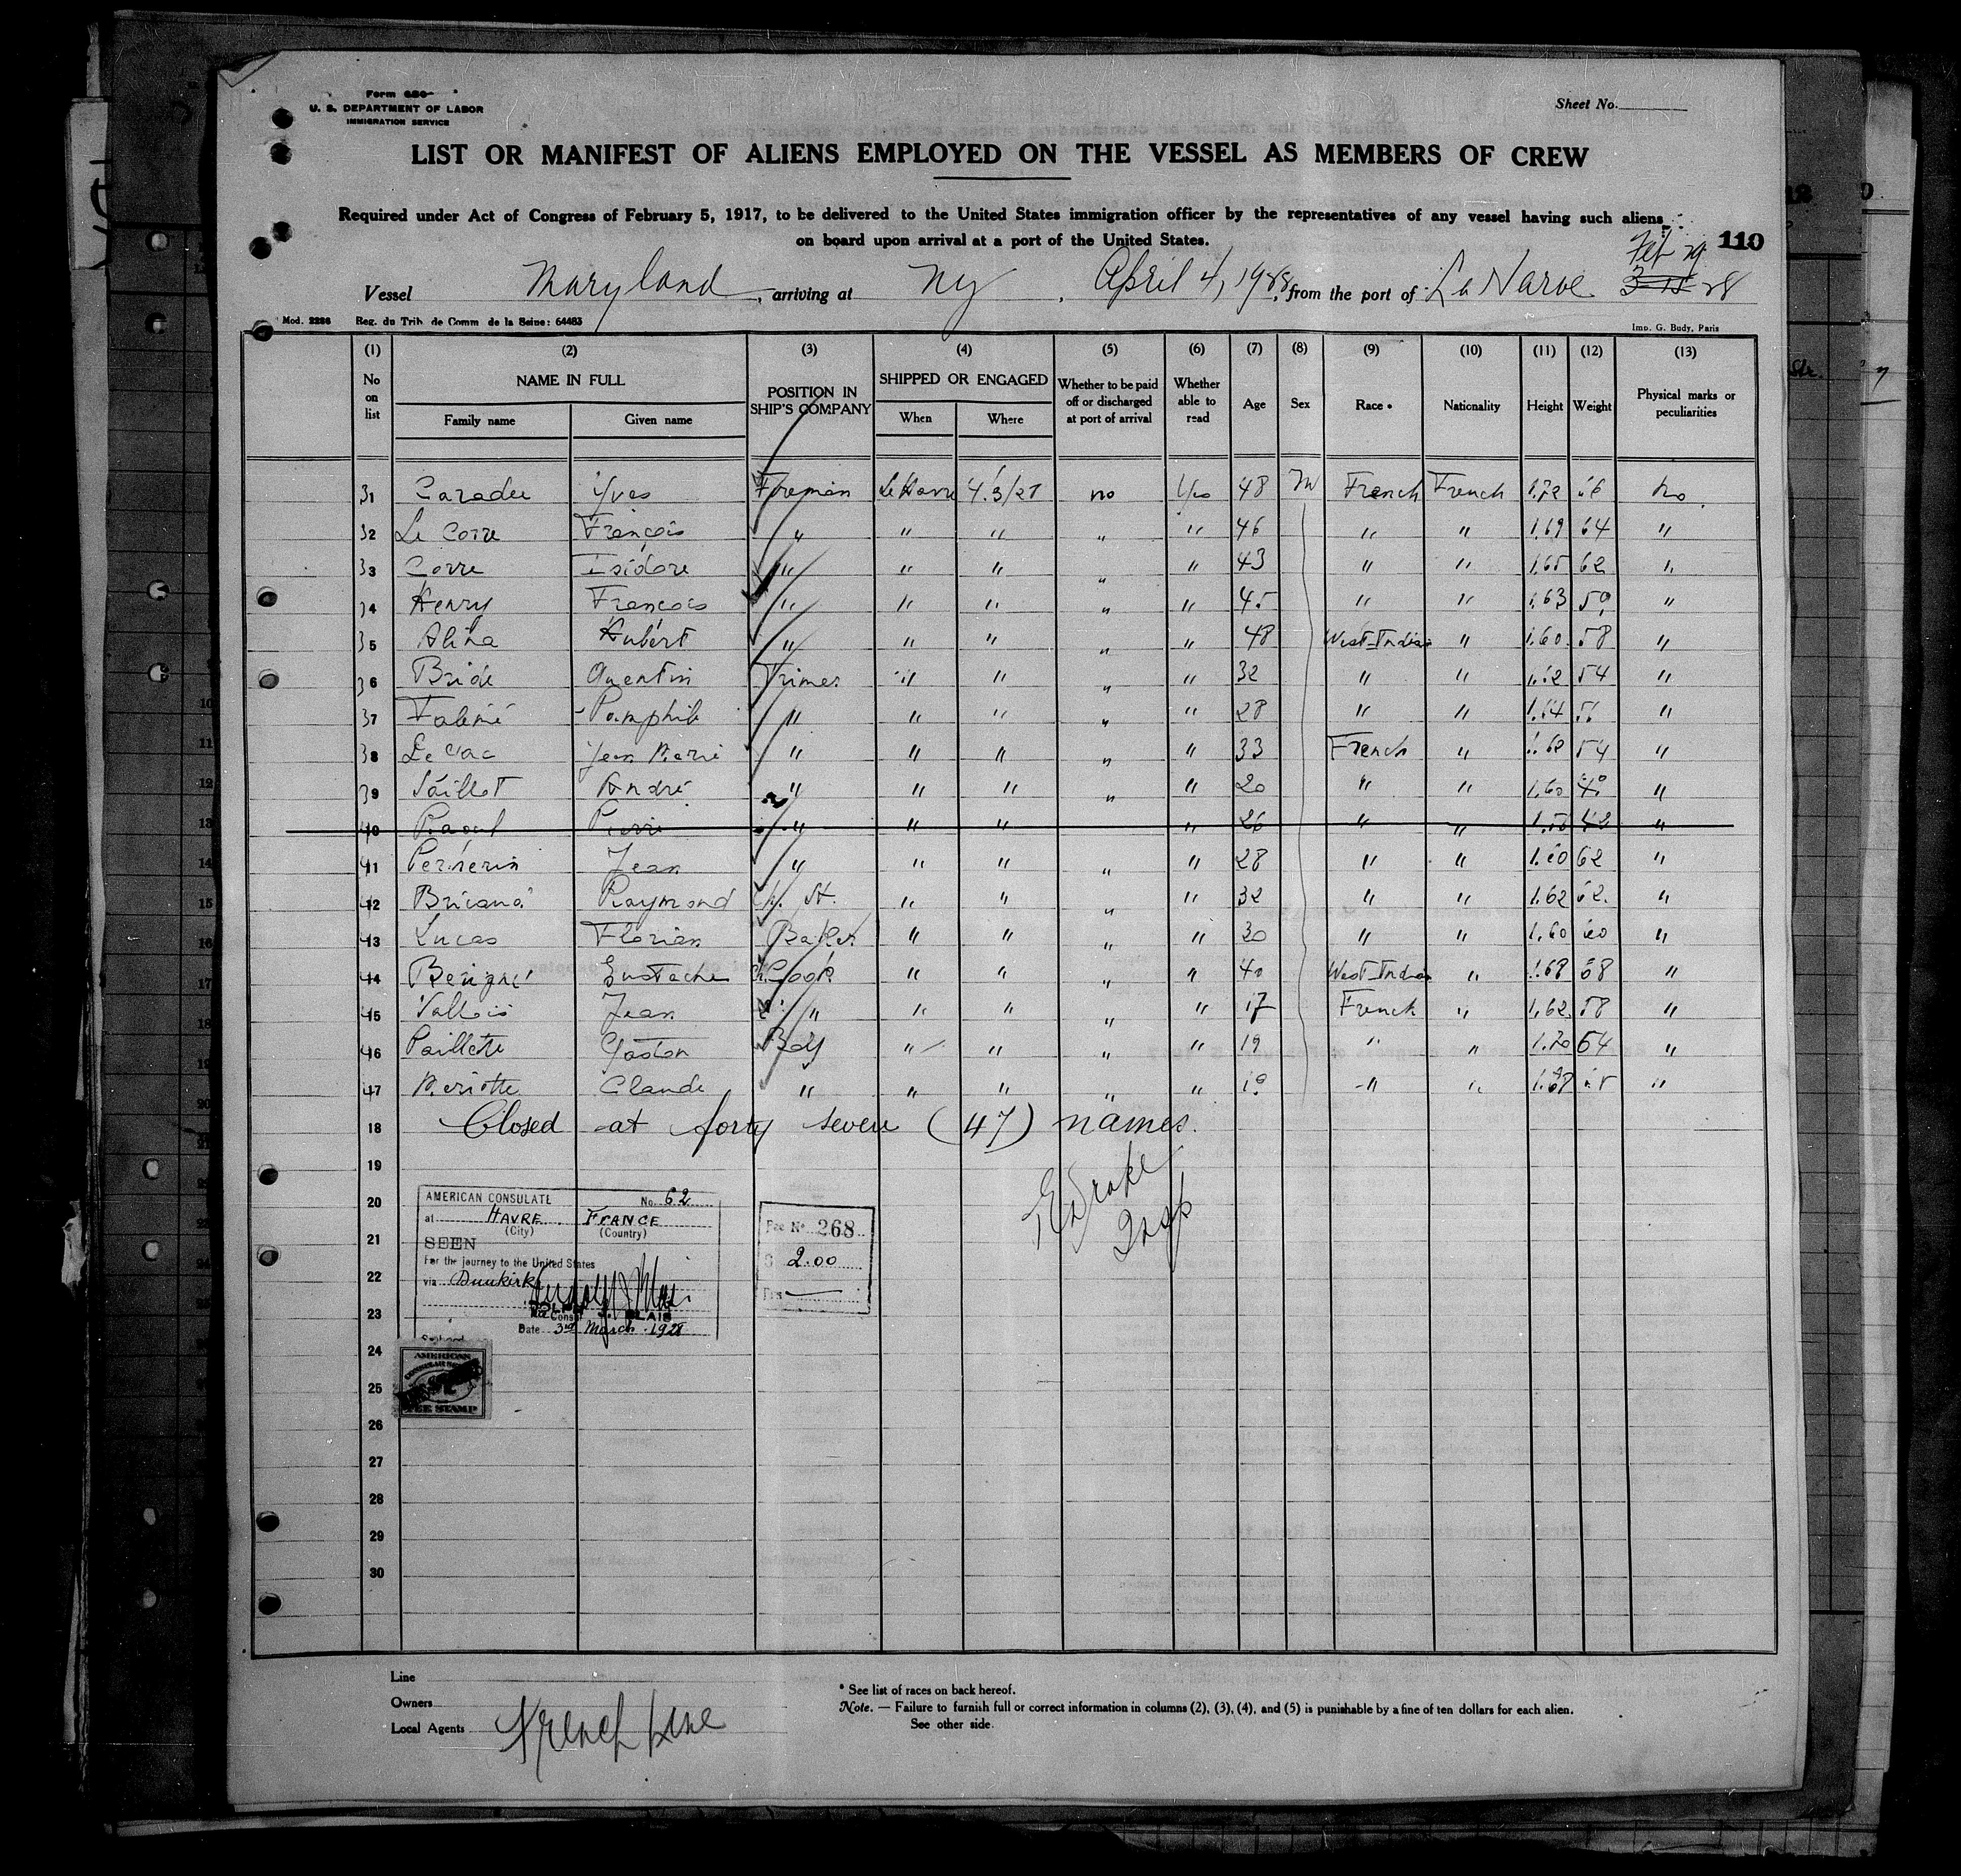 Form 680
U. S. DEPARTMENT OF LABOR
IMMIGRATION SERVICE
Sheet No.
LIST OR MANIFEST OF ALIENS EMPLOYED ON THE VESSEL AS MEMBERS OF CREW
Required under Act of Congress of February 5, 1917, to be delivered to the United States immigration officer by the representatives of any vessel having such aliens
on board upon arrival at a port of the United States.
110
Feb 29
Vessel Maryland, arriving at NY, April 4, 1928, from the port of La Havre 28
Mod. 2286 Reg. du Trib. de Comm de la Seine: 64483 Imp. G. Budy, Paris
(1) (2) (3) (4) (5) (6) (7) (8) (9) (10) (11) (12) (13)
No on list NAME IN FULL Family name Given name POSITION IN SHIP'S COMPANY SHIPPED OR ENGAGED When Where Whether to be paid off or discharged at port of arrival Whether able to read Age Sex Race * Nationality Height Weight Physical marks or peculiarities
31 Caradec Yves Fireman Le Havre no Yes 48 M French French 1.72 no
32 Le Corre François " " " " " 46 " " 1.69 64 "
33 Corre Isidore " " " " " 43 " " 1.65 62 "
34 Henry François " " " " " 45 " " 1.63 "
35 Alina Hubert " " " " " 48 West-Indian " 1.60 58 "
36 Bride Quentin Trimer " " " " 32 " " 54 "
37 " " " " " 28 " " "
38 Jean Marie " " " " " 33 French " 54 "
39 Saillot André " " " " " 20 " " 1.60 "
40 Raoul Pierre " " " " 26 " " "
41 Jean " " " " " 28 " " 62 "
42 Raymond " " " " 32 " " 1.62 62 "
43 Lucas Florian Baker " " " " 30 " " 1.60 60 "
44 Benigné Eustache Ch. Cook " " " " 40 West-Indian " 1.68 68 "
45 Jean " " " " " 17 French " 1.62 58 "
46 Paillette Gaston Boy " " " " 19 " " 1.70 64 "
47 Claude " " " " " " " "
18 Closed at forty seven (47) names.
19
20
21
22
23
24
25
26
27
28
29
30
AMERICAN CONSULATE No. 62
at HAVRE FRANCE
(City) (Country)
SEEN
For the journey to the United States
via Dunkirk
BLAIS
Consul
Date 3rd March 1928
Fee No. 268
$ 2.00
AMERICAN
FEE STAMP
Drake
Insp
Line
Owners
Local Agents French Line
* See list of races on back hereof.
Note. — Failure to furnish full or correct information in columns (2), (3), (4), and (5) is punishable by a fine of ten dollars for each alien.
See other side.